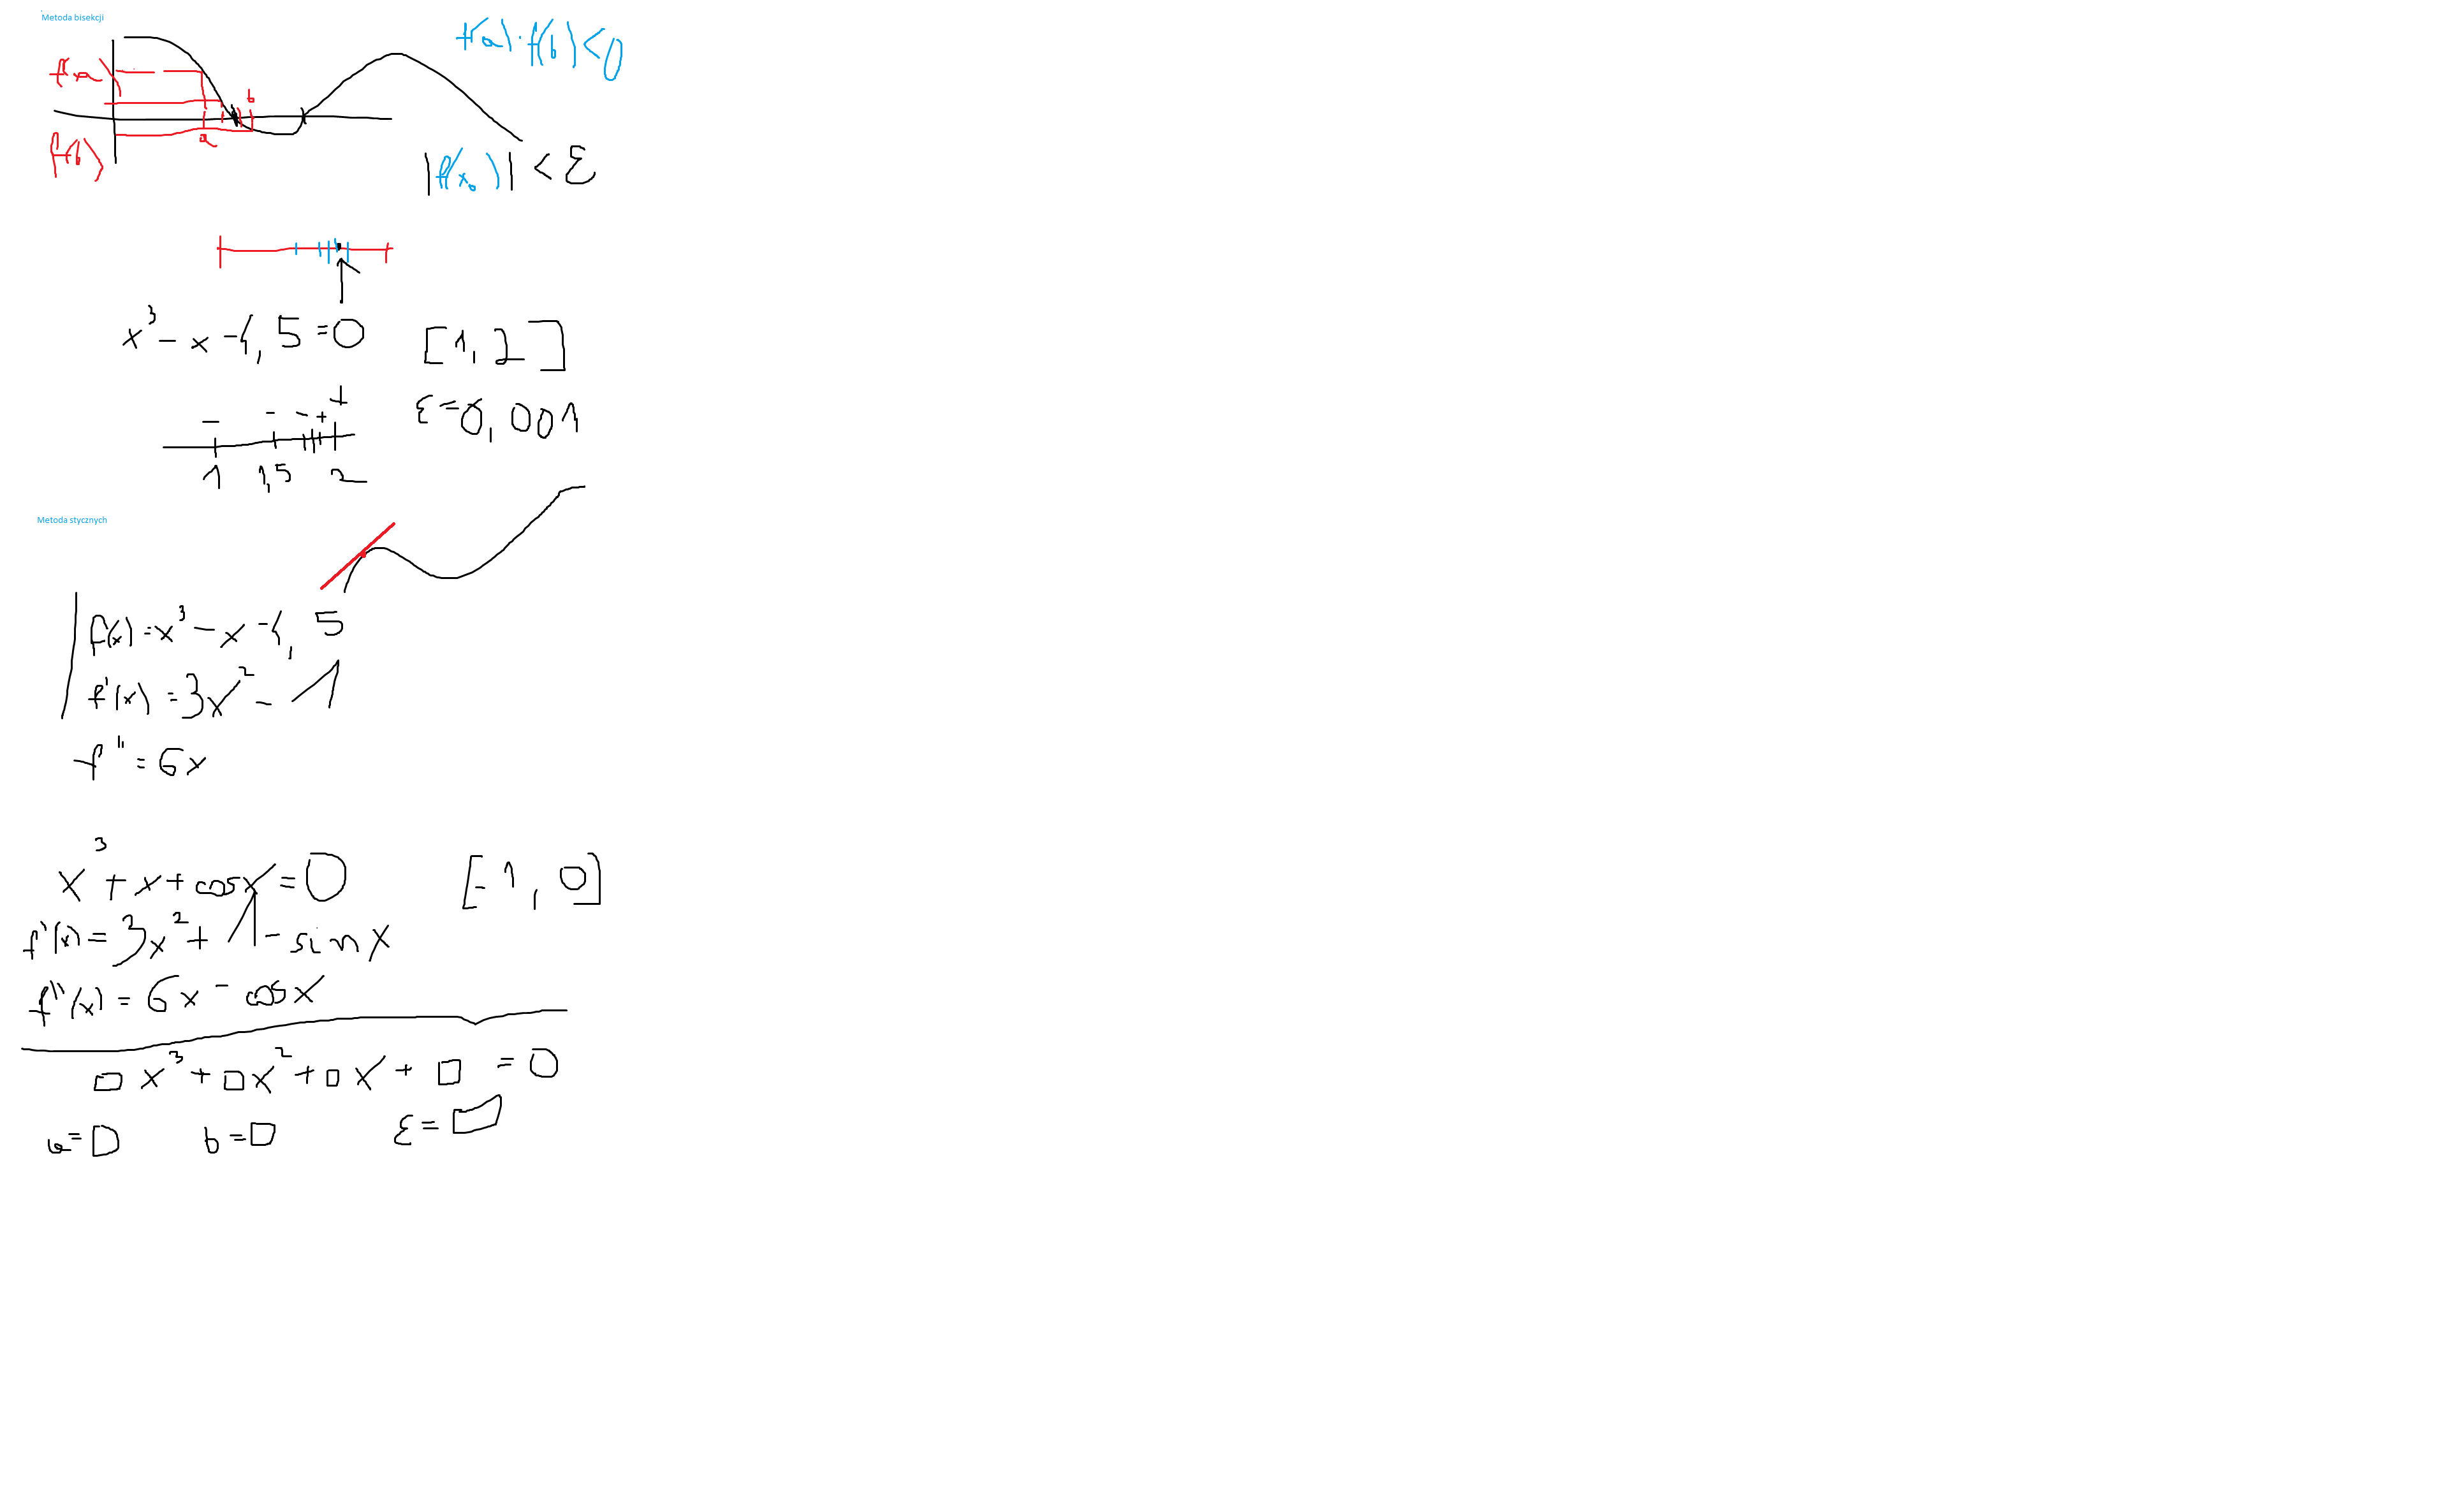 Metoda bisekcji
f(a) · f(b) < 0
f(a)
b
a
f(b)
|f(x₀)| < ε
x³ - x - 1,5 = 0 [1, 2]
ε = 0,001
- - - + +
1 1,5 2
Metoda stycznych
f(x) = x³ - x - 1,5
f'(x) = 3x² - 1
f'' = 6x
x³ + x + cosx = 0 [-1, 0]
f'(x) = 3x² + 1 - sinx
f''(x) = 6x - cosx
□x³ + □x² + □x + □ = 0
a = □ b = □ ε = □